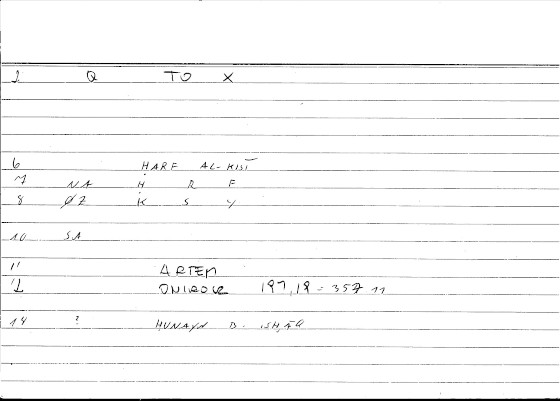 1 Q TO X
6 ḤARF AL-KISĪ
7 NA Ḥ R F
8 02 K S Y
10 SA
11 ARTEM
12 ONIROCR 197,18 = 357 11
14 ? ḤUNAYN B. ISḤĀQ